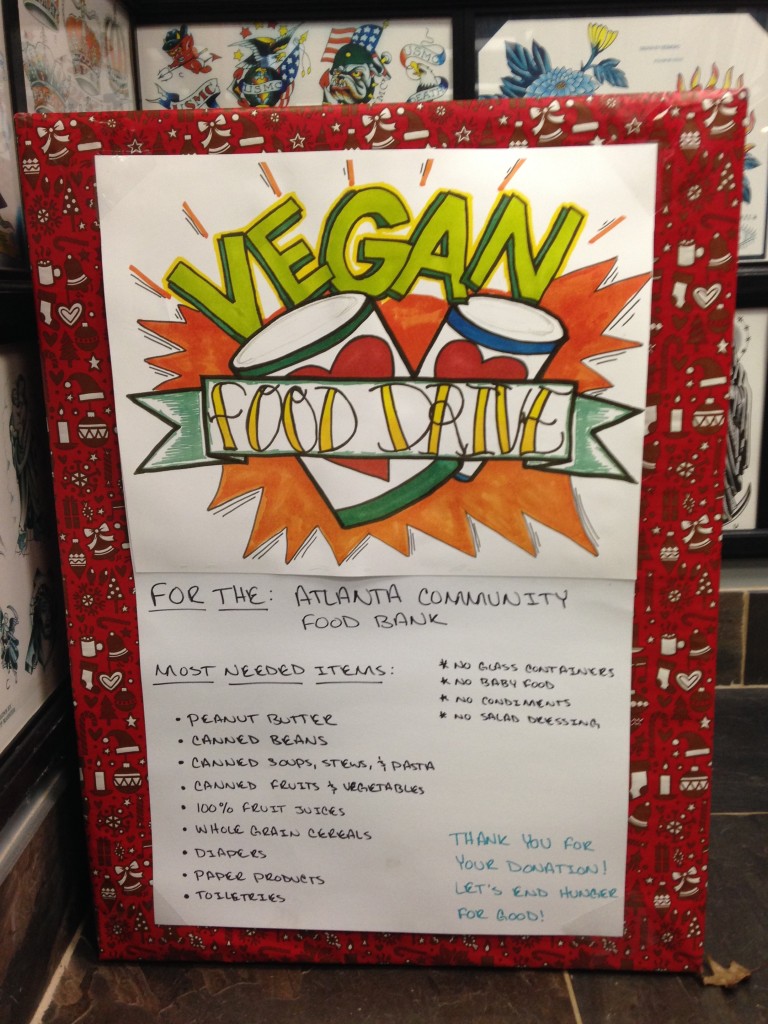 USMC
USMC
USMC
USMC
VEGAN
FOOD DRIVE
FOR THE: ATLANTA COMMUNITY
FOOD BANK
MOST NEEDED ITEMS:
* NO GLASS CONTAINERS
* NO BABY FOOD
* NO CONDIMENTS
* NO SALAD DRESSING
• PEANUT BUTTER
• CANNED BEANS
• CANNED SOUPS, STEWS, & PASTA
• CANNED FRUITS & VEGETABLES
• 100% FRUIT JUICES
• WHOLE GRAIN CEREALS
• DIAPERS
• PAPER PRODUCTS
• TOILETRIES
THANK YOU FOR
YOUR DONATION!
LET'S END HUNGER
FOR GOOD!